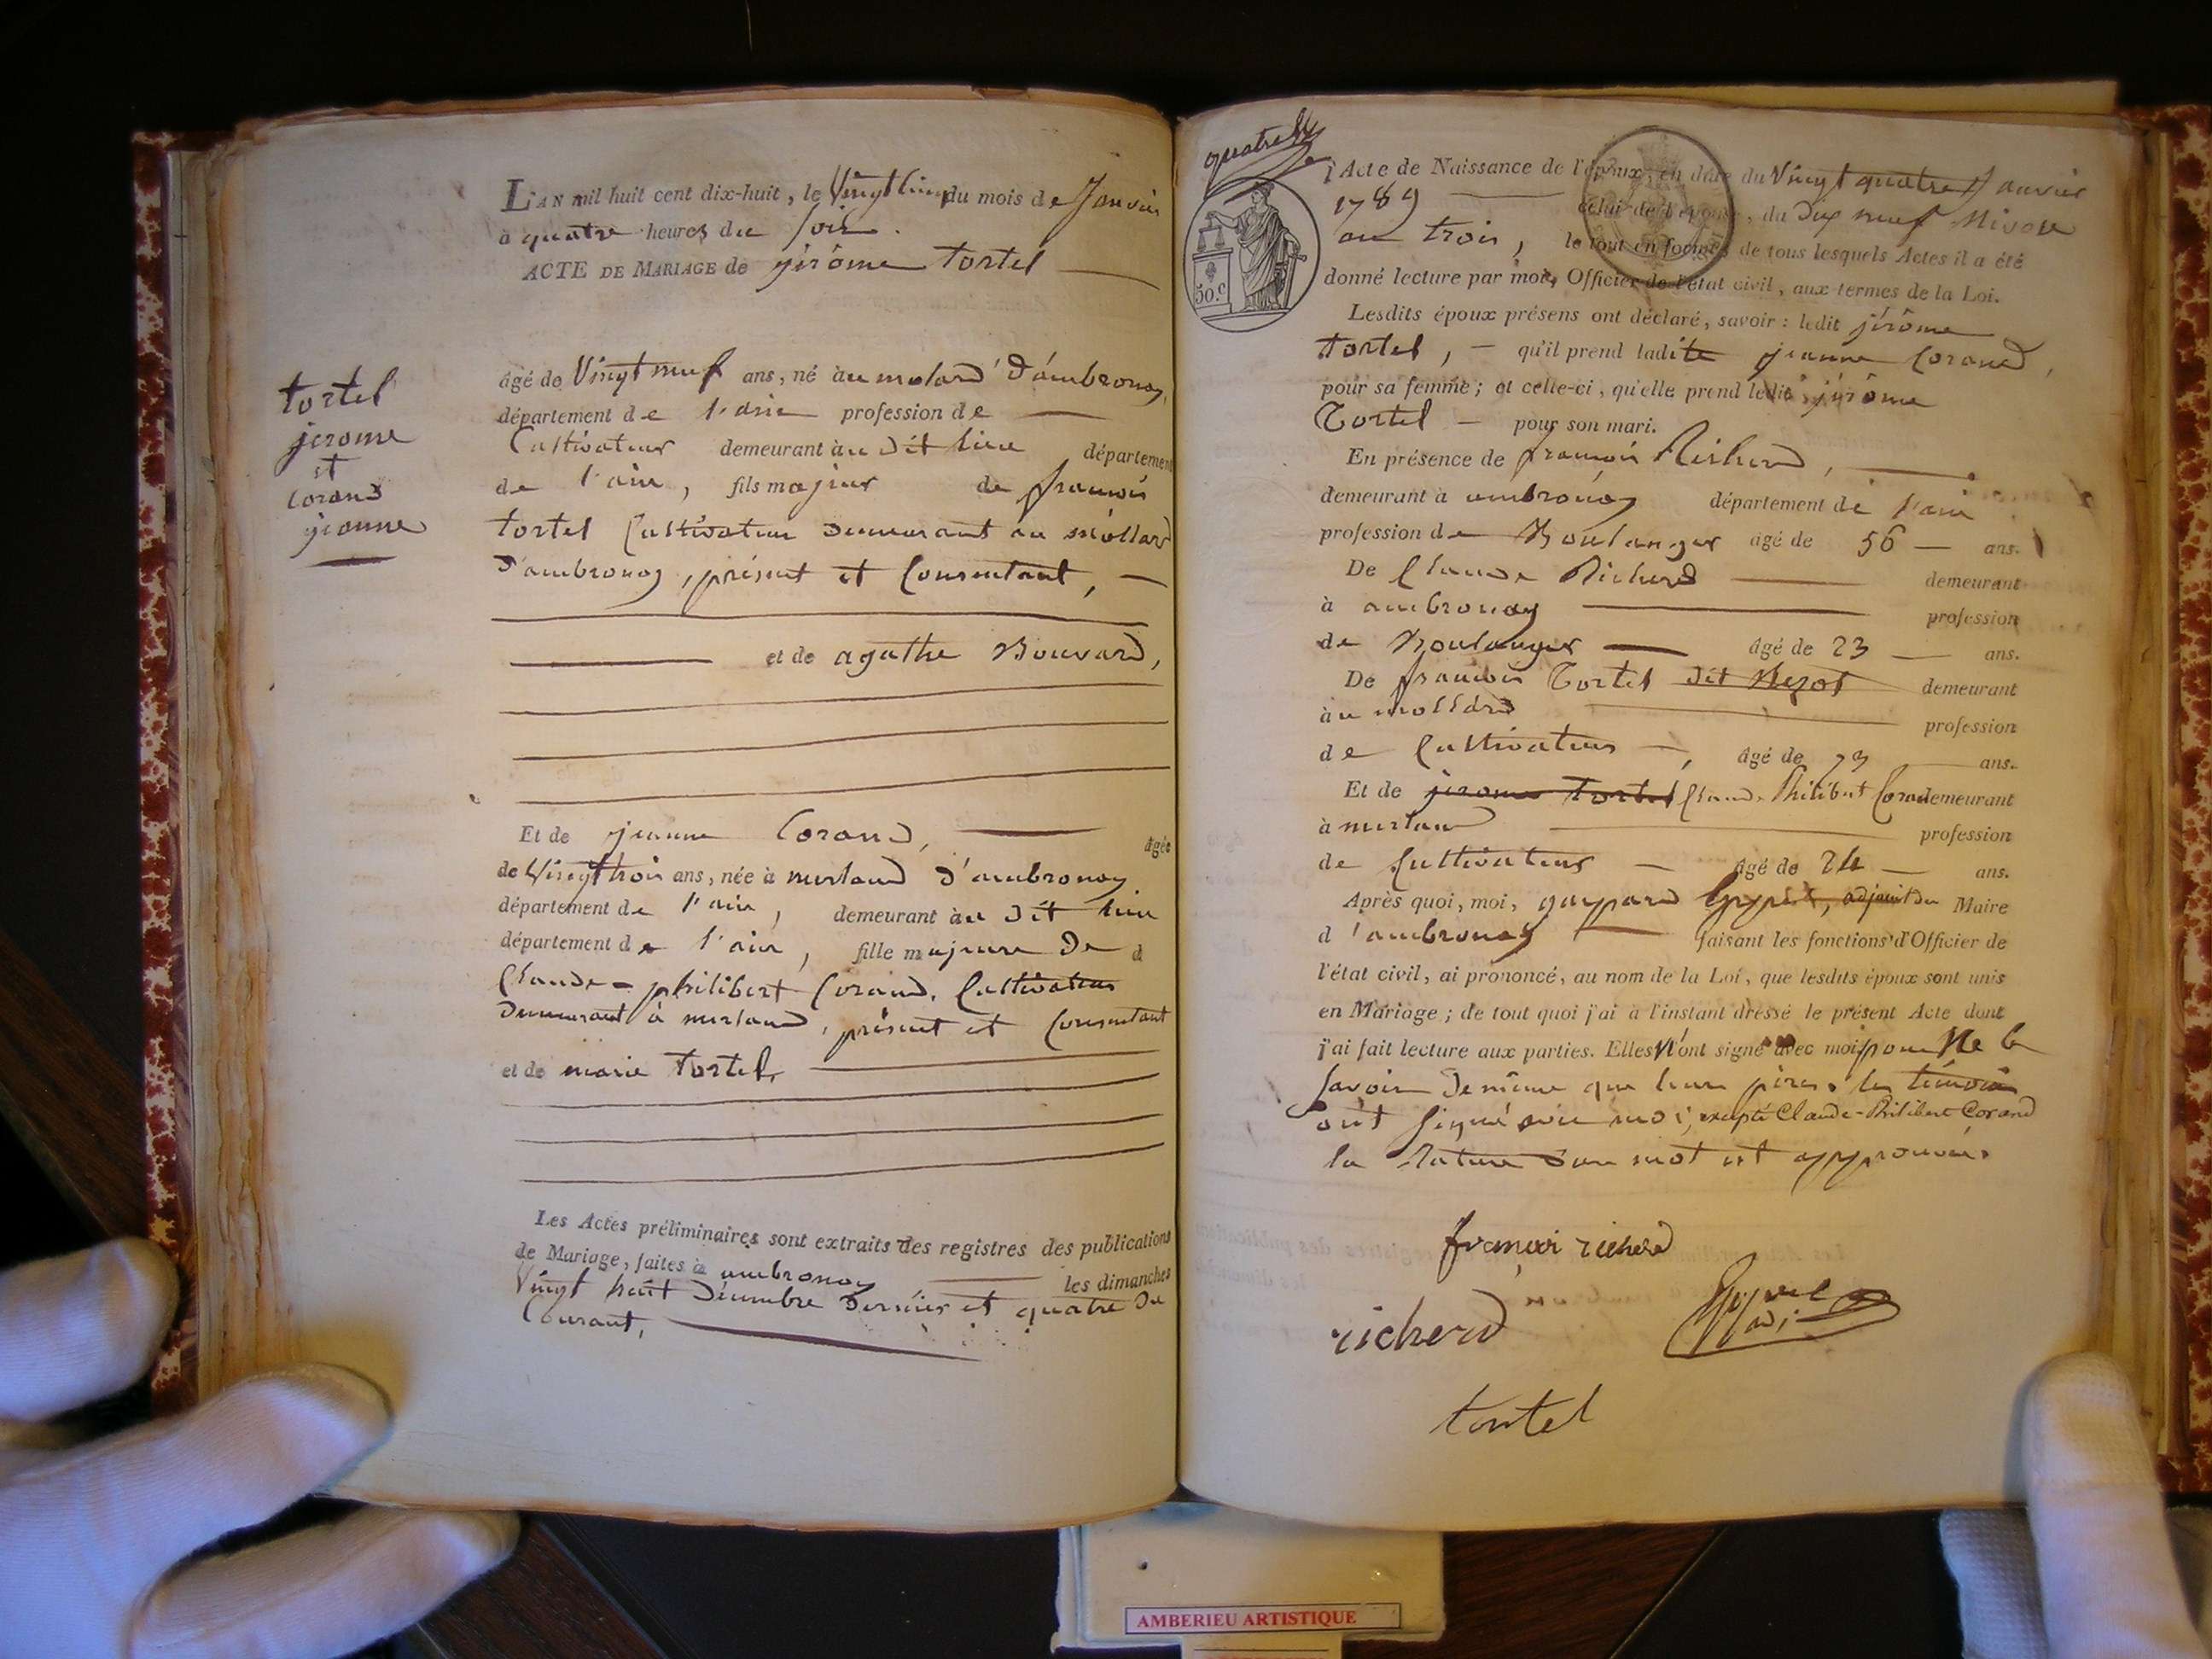 L'AN mil huit cent dix-huit, le Vingt Cinq du mois de Janvier
à quatre heures du soir.
ACTE DE MARIAGE de jérôme tortel
tortel
jerome
et
Corand
jeanne
âgé de Vingt neuf ans, né au molard d'ambronay,
département de l'ain profession de
Cultivateur demeurant au dit lieu département
de l'ain, fils majeur de françois
tortel Cultivateur demeurant au mollard
d'ambronay, présent et Consentant,
et de agathe Bouvard,
Et de jeanne Corand, âgée
de Vingt trois ans, née à merland d'ambronay
département de l'ain, demeurant au dit lieu
département de l'ain, fille majeure De d
Claude-philibert Corand, Cultivateur
demeurant à merland, présent et Consentant
et de marie tortel,
Les Actes préliminaires sont extraits des registres des publications
de Mariage, faites à ambronay les dimanches
Vingt huit décembre dernier et quatre du
Courant,
quatre
50.c
l'Acte de Naissance de l'époux, en date du Vingt quatre Janvier
1789 celui de l'épouse, du dix neuf Nivose
an trois, le tout en formes de tous lesquels Actes il a été
donné lecture par moi, Officier de l'état civil, aux termes de la Loi.
Lesdits époux présens ont déclaré, savoir : ledit jérôme
tortel, qu'il prend ladite jeanne Corand,
pour sa femme ; et celle-ci, qu'elle prend ledit jérôme
Tortel pour son mari.
En présence de françois Richerd,
demeurant à ambronay département de l'ain
profession de Boulanger âgé de 56 ans.
De Claude Richerd demeurant
à ambronay profession
de Boulanger âgé de 23 ans.
De françois Tortel dit demeurant
au mollard profession
de Cultivateur, âgé de 73 ans.
Et de jerome tortel Claude Philibert Corand demeurant
à merland profession
de Cultivateur âgé de 24 ans.
Après quoi, moi, gaspard adjoint du Maire
d'ambronay faisant les fonctions d'Officier de
l'état civil, ai prononcé, au nom de la Loi, que lesdits époux sont unis
en Mariage ; de tout quoi j'ai à l'instant dressé le présent Acte dont
j'ai fait lecture aux parties. Elles N'ont signé avec moi pour Ne le
savoir de même que leurs pères. les témoins
ont signé avec moi, excepté Claude-Philibert Corand
la Rature d'un mot est approuvée.
françoi richerd
richerd
tortel
AMBERIEU ARTISTIQUE